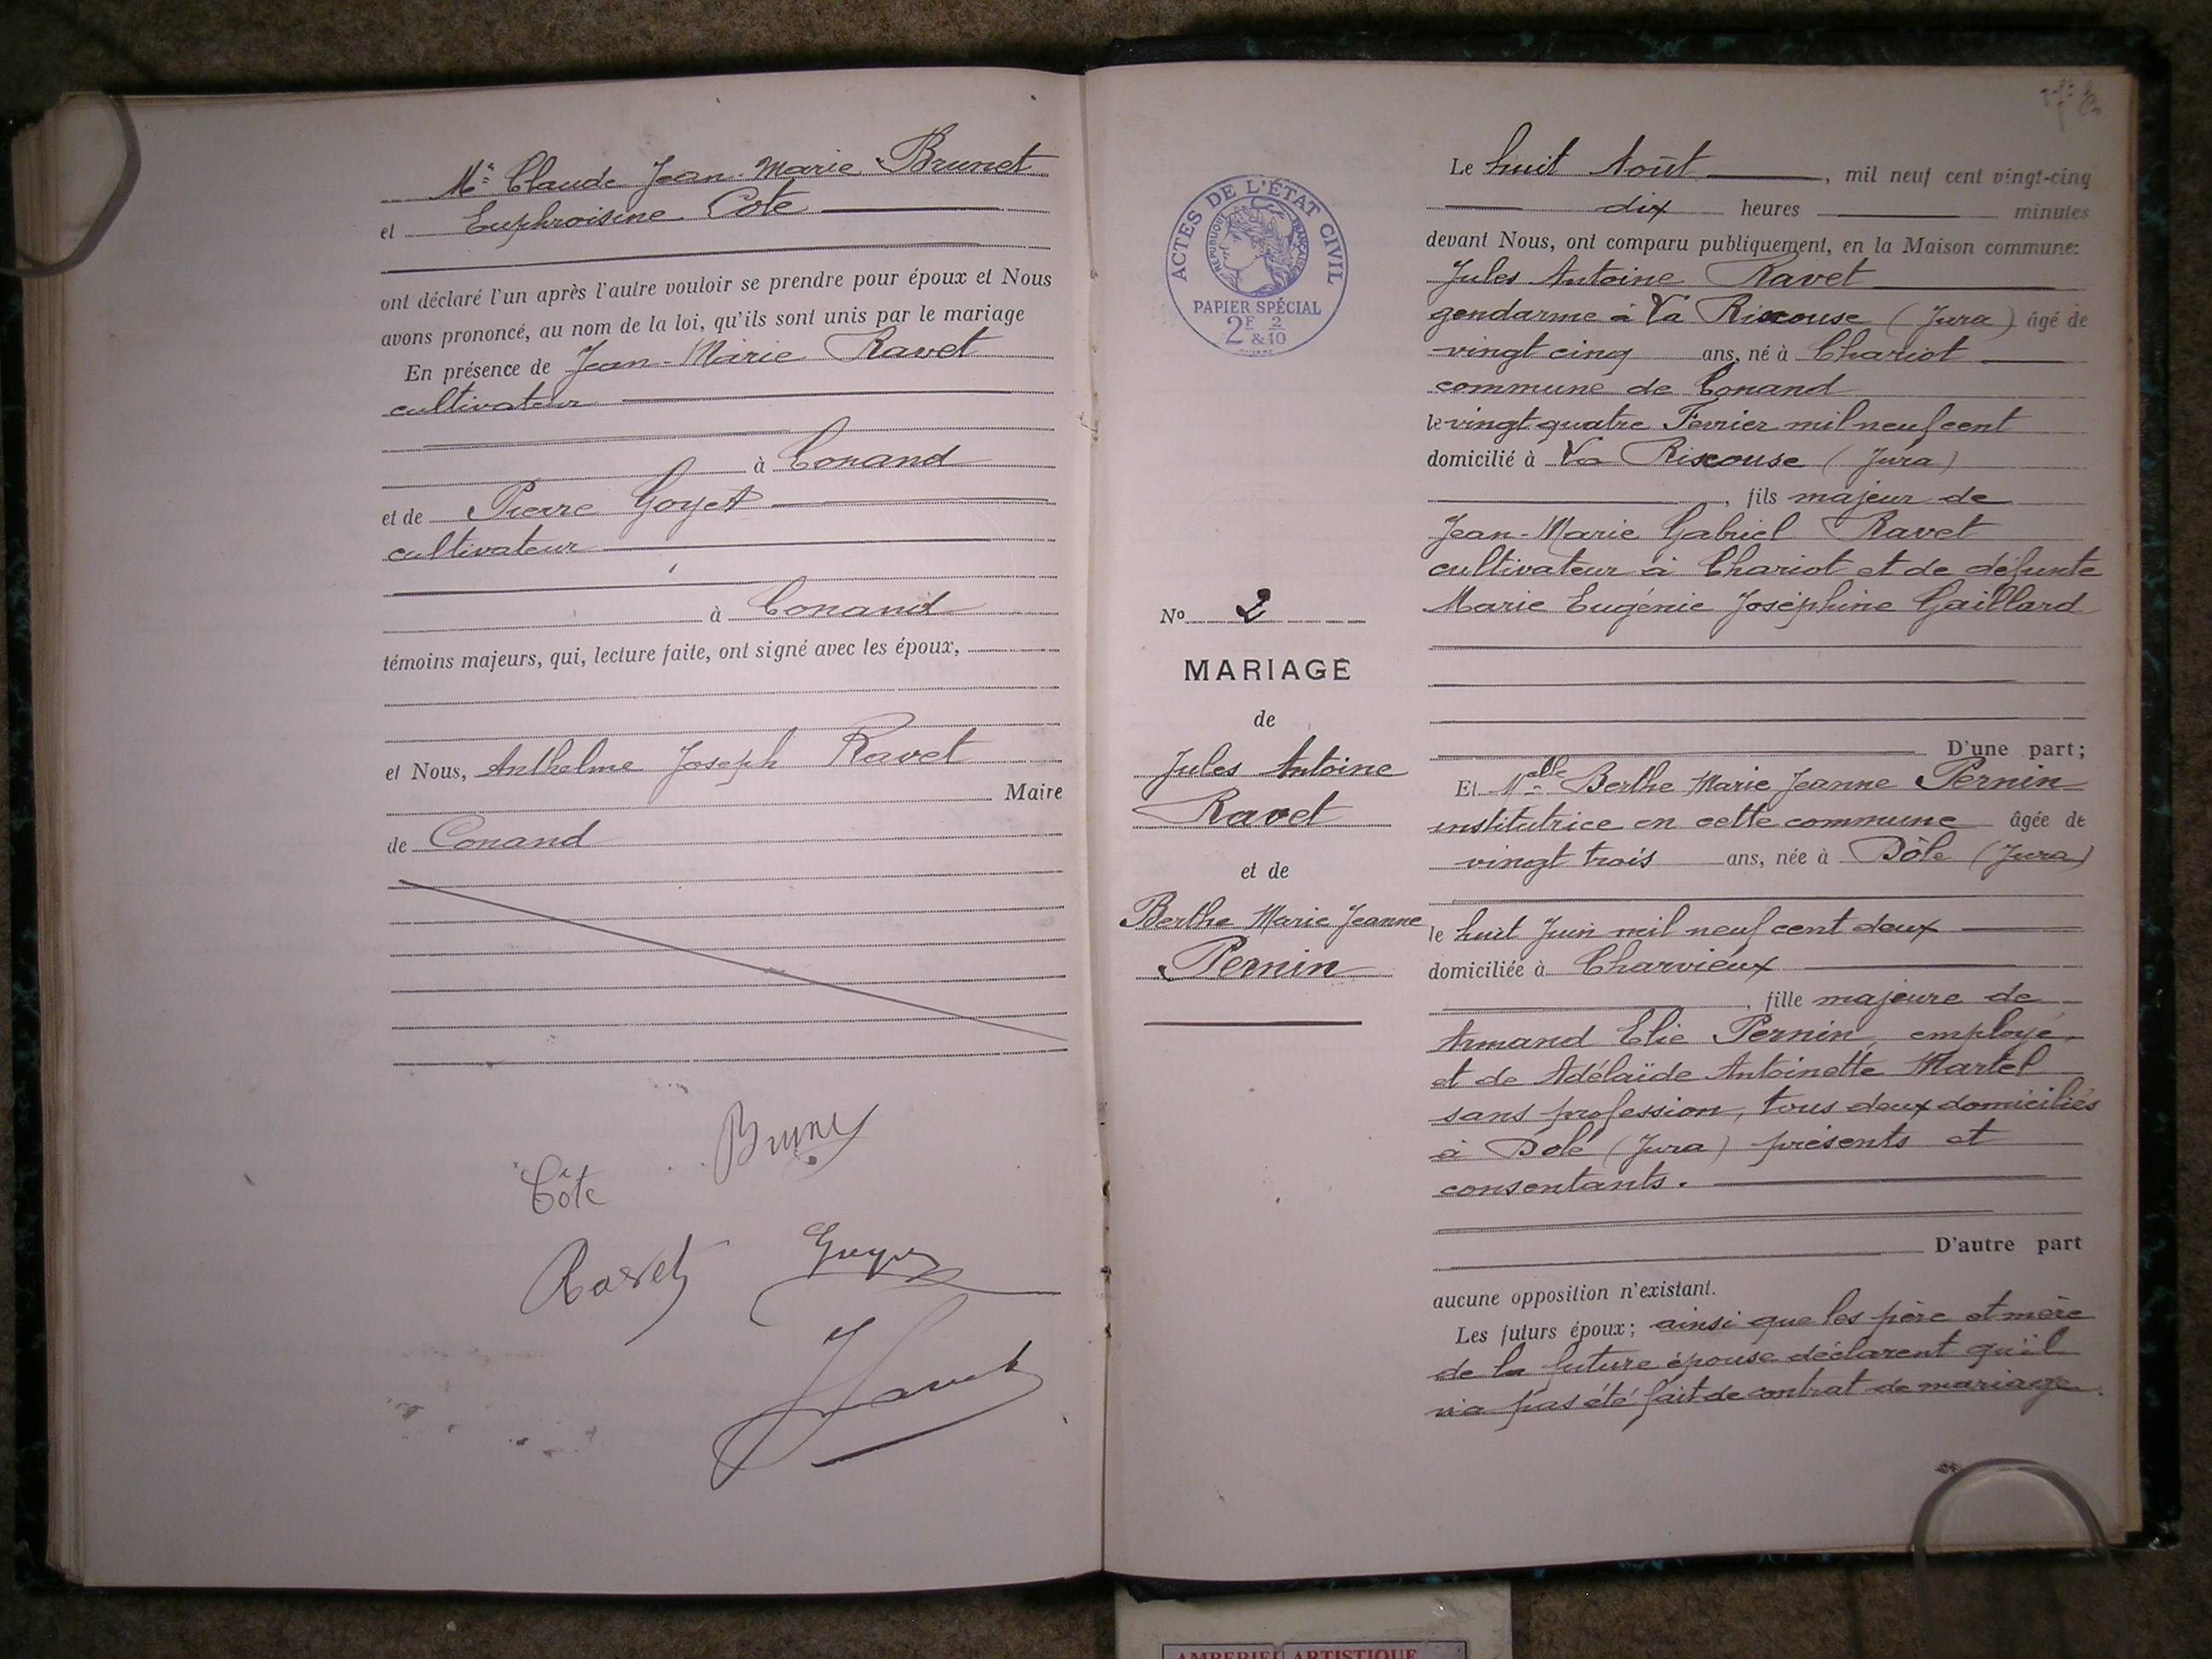 Mr Claude Jean-Marie Brunet
et Euphroisine Cote
ont déclaré l'un après l'autre vouloir se prendre pour époux et Nous
avons prononcé, au nom de la loi, qu'ils sont unis par le mariage
En présence de Jean-Marie Ravet
cultivateur
à Conand
et de Pierre Goyet
cultivateur
à Conand
témoins majeurs, qui, lecture faite, ont signé avec les époux,
et Nous, Anthelme Joseph Ravet
Maire
de Conand
Brunet
Côte
Ravet
Ravet
ACTES DE L'ÉTAT CIVIL
RÉPUBLIQUE FRANÇAISE
PAPIER SPÉCIAL
2F & 2/10
No 2
MARIAGE
de
Jules Antoine
Ravet
et de
Berthe Marie Jeanne
Pernin
Le huit Août, mil neuf cent vingt-cinq
dix heures minutes
devant Nous, ont comparu publiquement, en la Maison commune:
Jules Antoine Ravet
gendarme à La Rixouse (Jura) âgé de
vingt cinq ans, né à Chariot
commune de Conand
le vingt quatre Fevrier mil neuf cent
domicilié à La Rixouse (Jura)
, fils majeur de
Jean-Marie Gabriel Ravet
cultivateur à Chariot et de défunte
Marie Eugénie Joséphine Gaillard
D'une part;
Et Melle Berthe Marie Jeanne Pernin
institutrice en cette commune âgée de
vingt trois ans, née à Dôle (Jura)
le huit Juin mil neuf cent deux
domiciliée à Charvieux
, fille majeure de
Armand Elie Pernin, employé,
et de Adélaïde Antoinette Martel
sans profession, tous deux domiciliés
à Dole (Jura) présents et
consentants.
D'autre part
aucune opposition n'existant.
Les futurs époux; ainsi que les père et mère
de la future épouse déclarent qu'il
n'a pas été fait de contrat de mariage.
AMBERIEU ARTISTIQUE